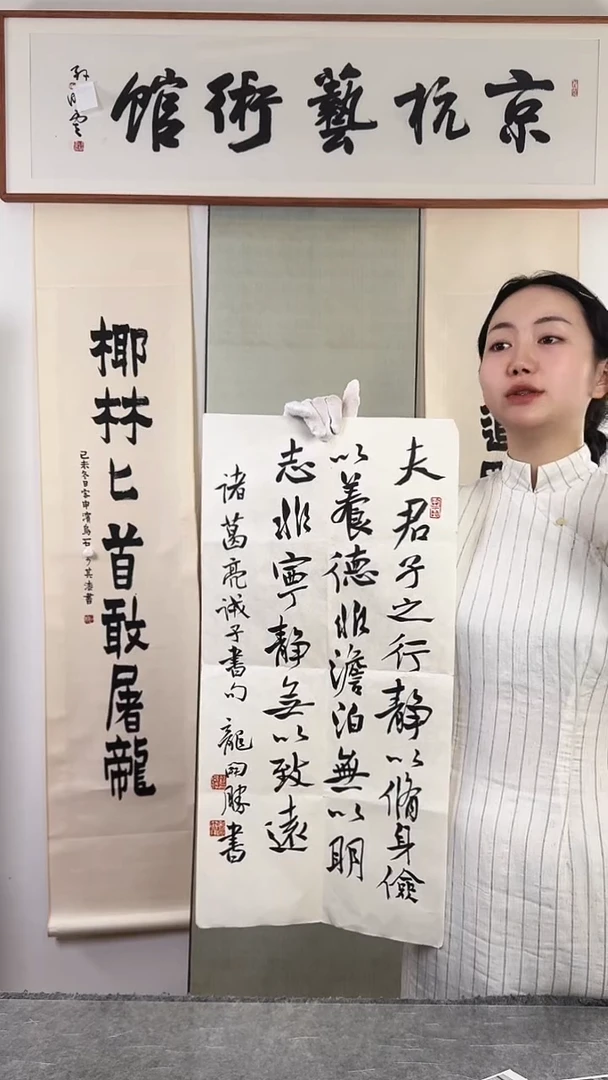 京杭藝術館
夫君子之行靜以脩身儉
以養德非澹泊無以明
志非寧靜無以致遠
诸葛亮诫子書句 龍開勝書
椰林匕首敢屠龍
己未冬日客申濱